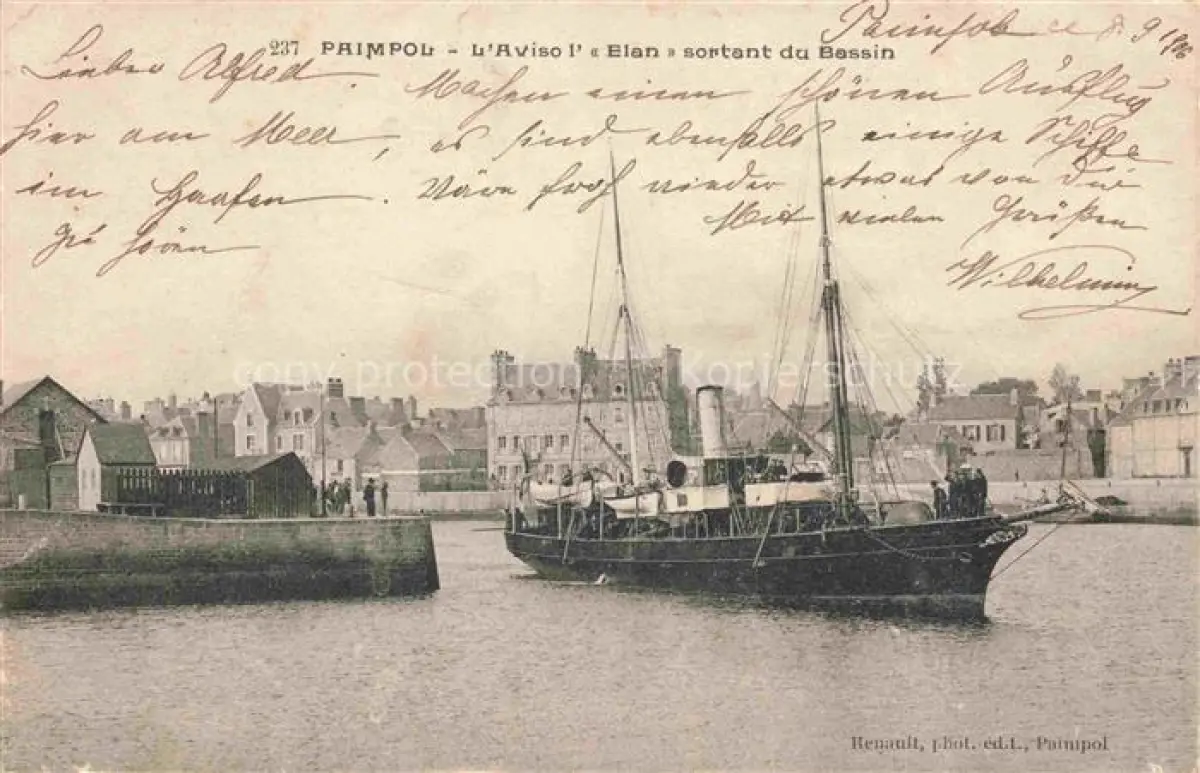 Paimpol ce 8. 9 1906
237 PAIMPOL - L'Aviso l' « Elan » sortant du Bassin
Lieber Alfred. Machen einen schönen Ausflug
hier am Meer, es sind ebenfalls einige Schiffe
im Haafen. Wäre froh wieder etwas von dir
zu hören Mit vielen Grüßen
Wilhelmin
copy protection - Kopierschutz
Renault, phot. edit., Paimpol